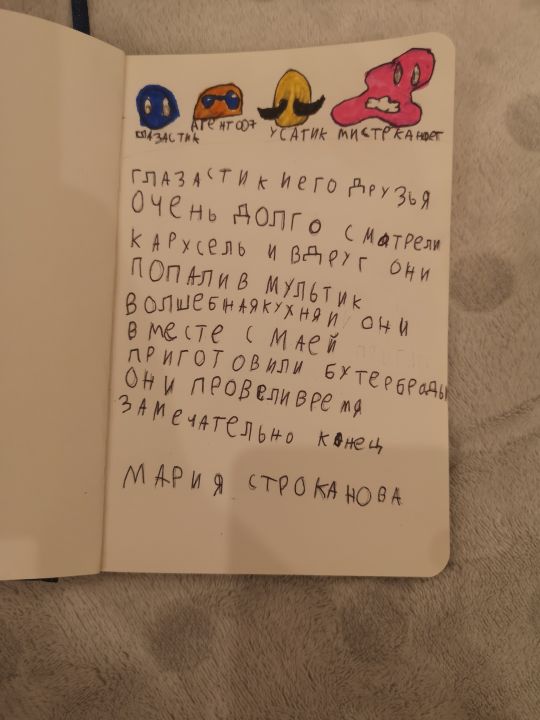 ГЛАЗАСТИК АГЕНТ007 УСАТИК МИСТРКАНФЕТ
ГЛАЗАСТИК ИЕГО ДРУЗЬЯ
ОЧЕНЬ ДОЛГО СМАТРЕЛИ
КАРУСЕЛЬ И ВДРУГ ОНИ
ПОПАЛИ В МУЛЬТИК
ВОЛШЕБНАЯКУХНЯ И ОНИ
ВМЕСТЕ С МАЕЙ
ПРИГОТОВИЛИ БУТЕРБРАДЫ
ОНИ ПРОВЕЛИВРЕМЯ
ЗАМЕЧАТЕЛЬНО КОНЕЦ
МАРИЯ СТРОКАНОВА